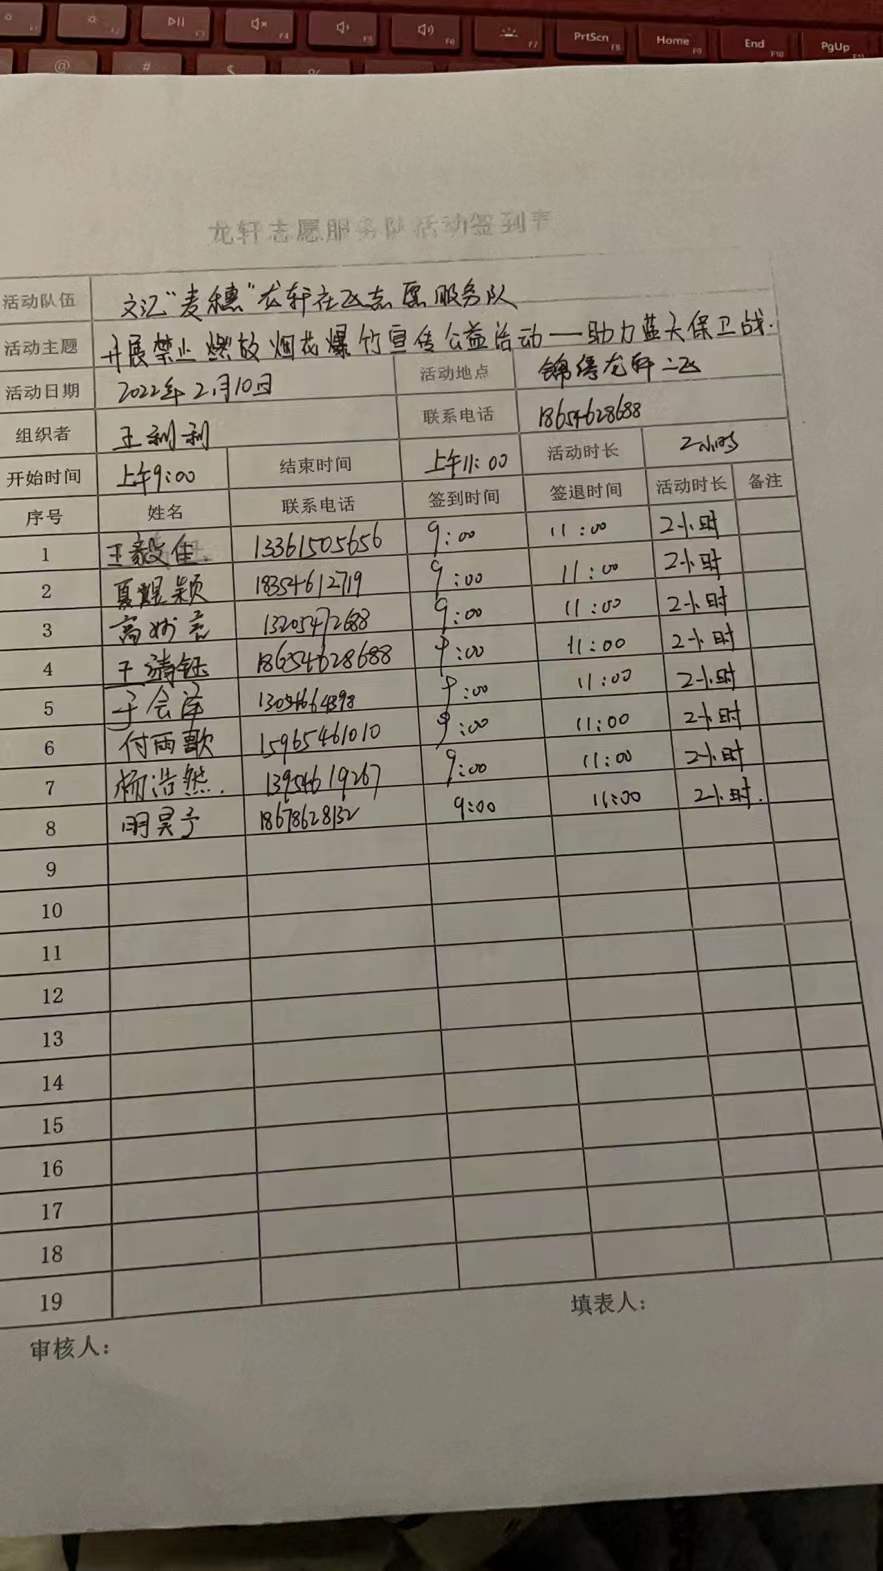 PrtScn Home End PgUp
龙轩志愿服务队活动签到表
活动队伍 文汇“麦穗”龙轩社区志愿服务队
活动主题 开展禁止燃放烟花爆竹宣传公益活动——助力蓝天保卫战.
活动日期 2022年2月10日 活动地点 锦绣龙轩二区
组织者 王利利 联系电话 18654628688
开始时间 上午9:00 结束时间 上午11:00 活动时长 2小时
序号 姓名 联系电话 签到时间 签退时间 活动时长 备注
1 王毅佳 13361505656 9:00 11:00 2小时
2 夏煜颖 18354612719 9:00 11:00 2小时
3 高妙 13205472688 9:00 11:00 2小时
4 于清钰 18654628688 9:00 11:00 2小时
5 于会洋 9:00 11:00 2小时
6 付雨歌 15965461010 9:00 11:00 2小时
7 杨浩然. 13954619267 9:00 11:00 2小时
8 明昊予 18678628132 9:00 11:00 2小时.
9
10
11
12
13
14
15
16
17
18
19
填表人：
审核人：